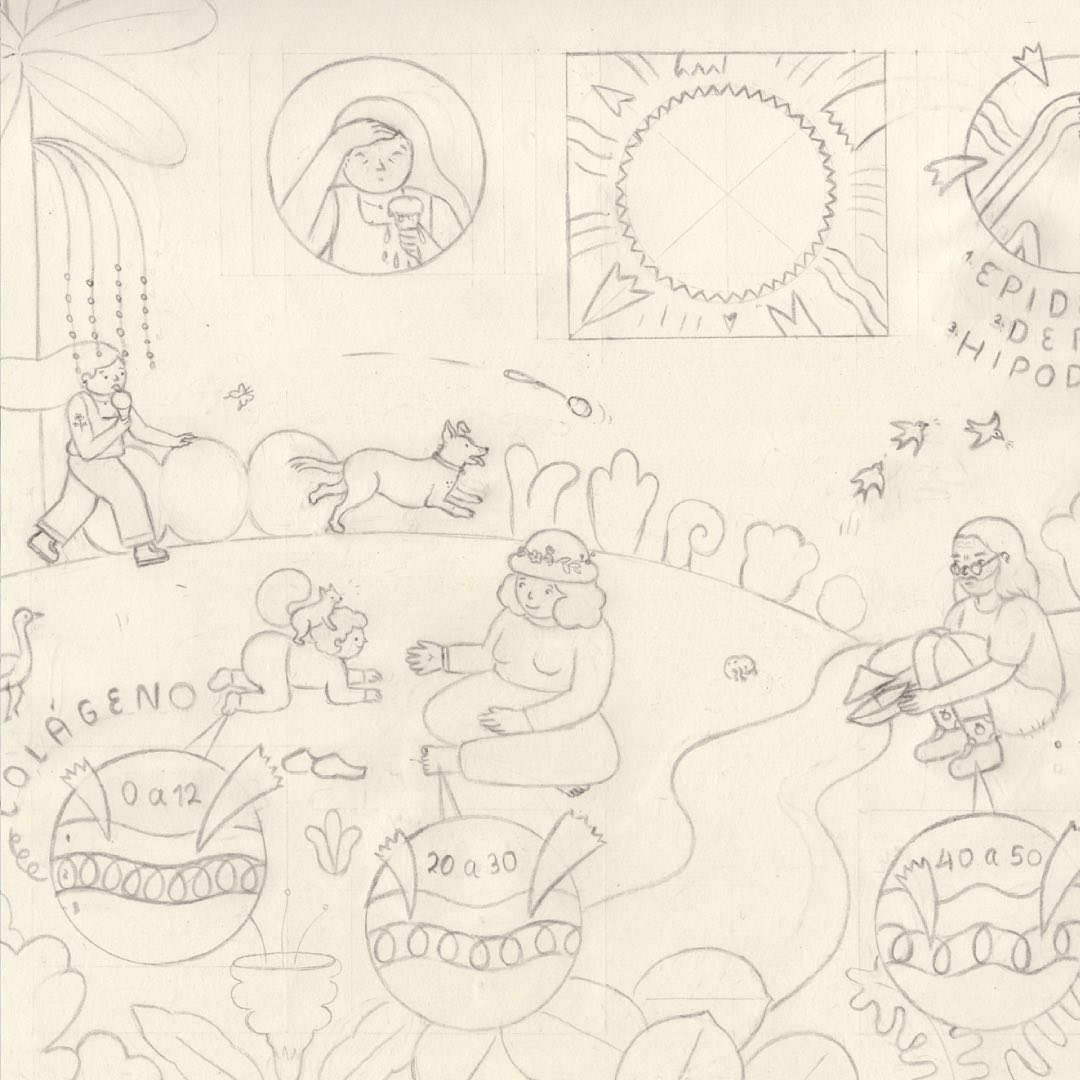 1. EPID
2. DER
3. HIPOD
COLÁGENO
0 a 12
1
2
3
20 a 30
40 a 50